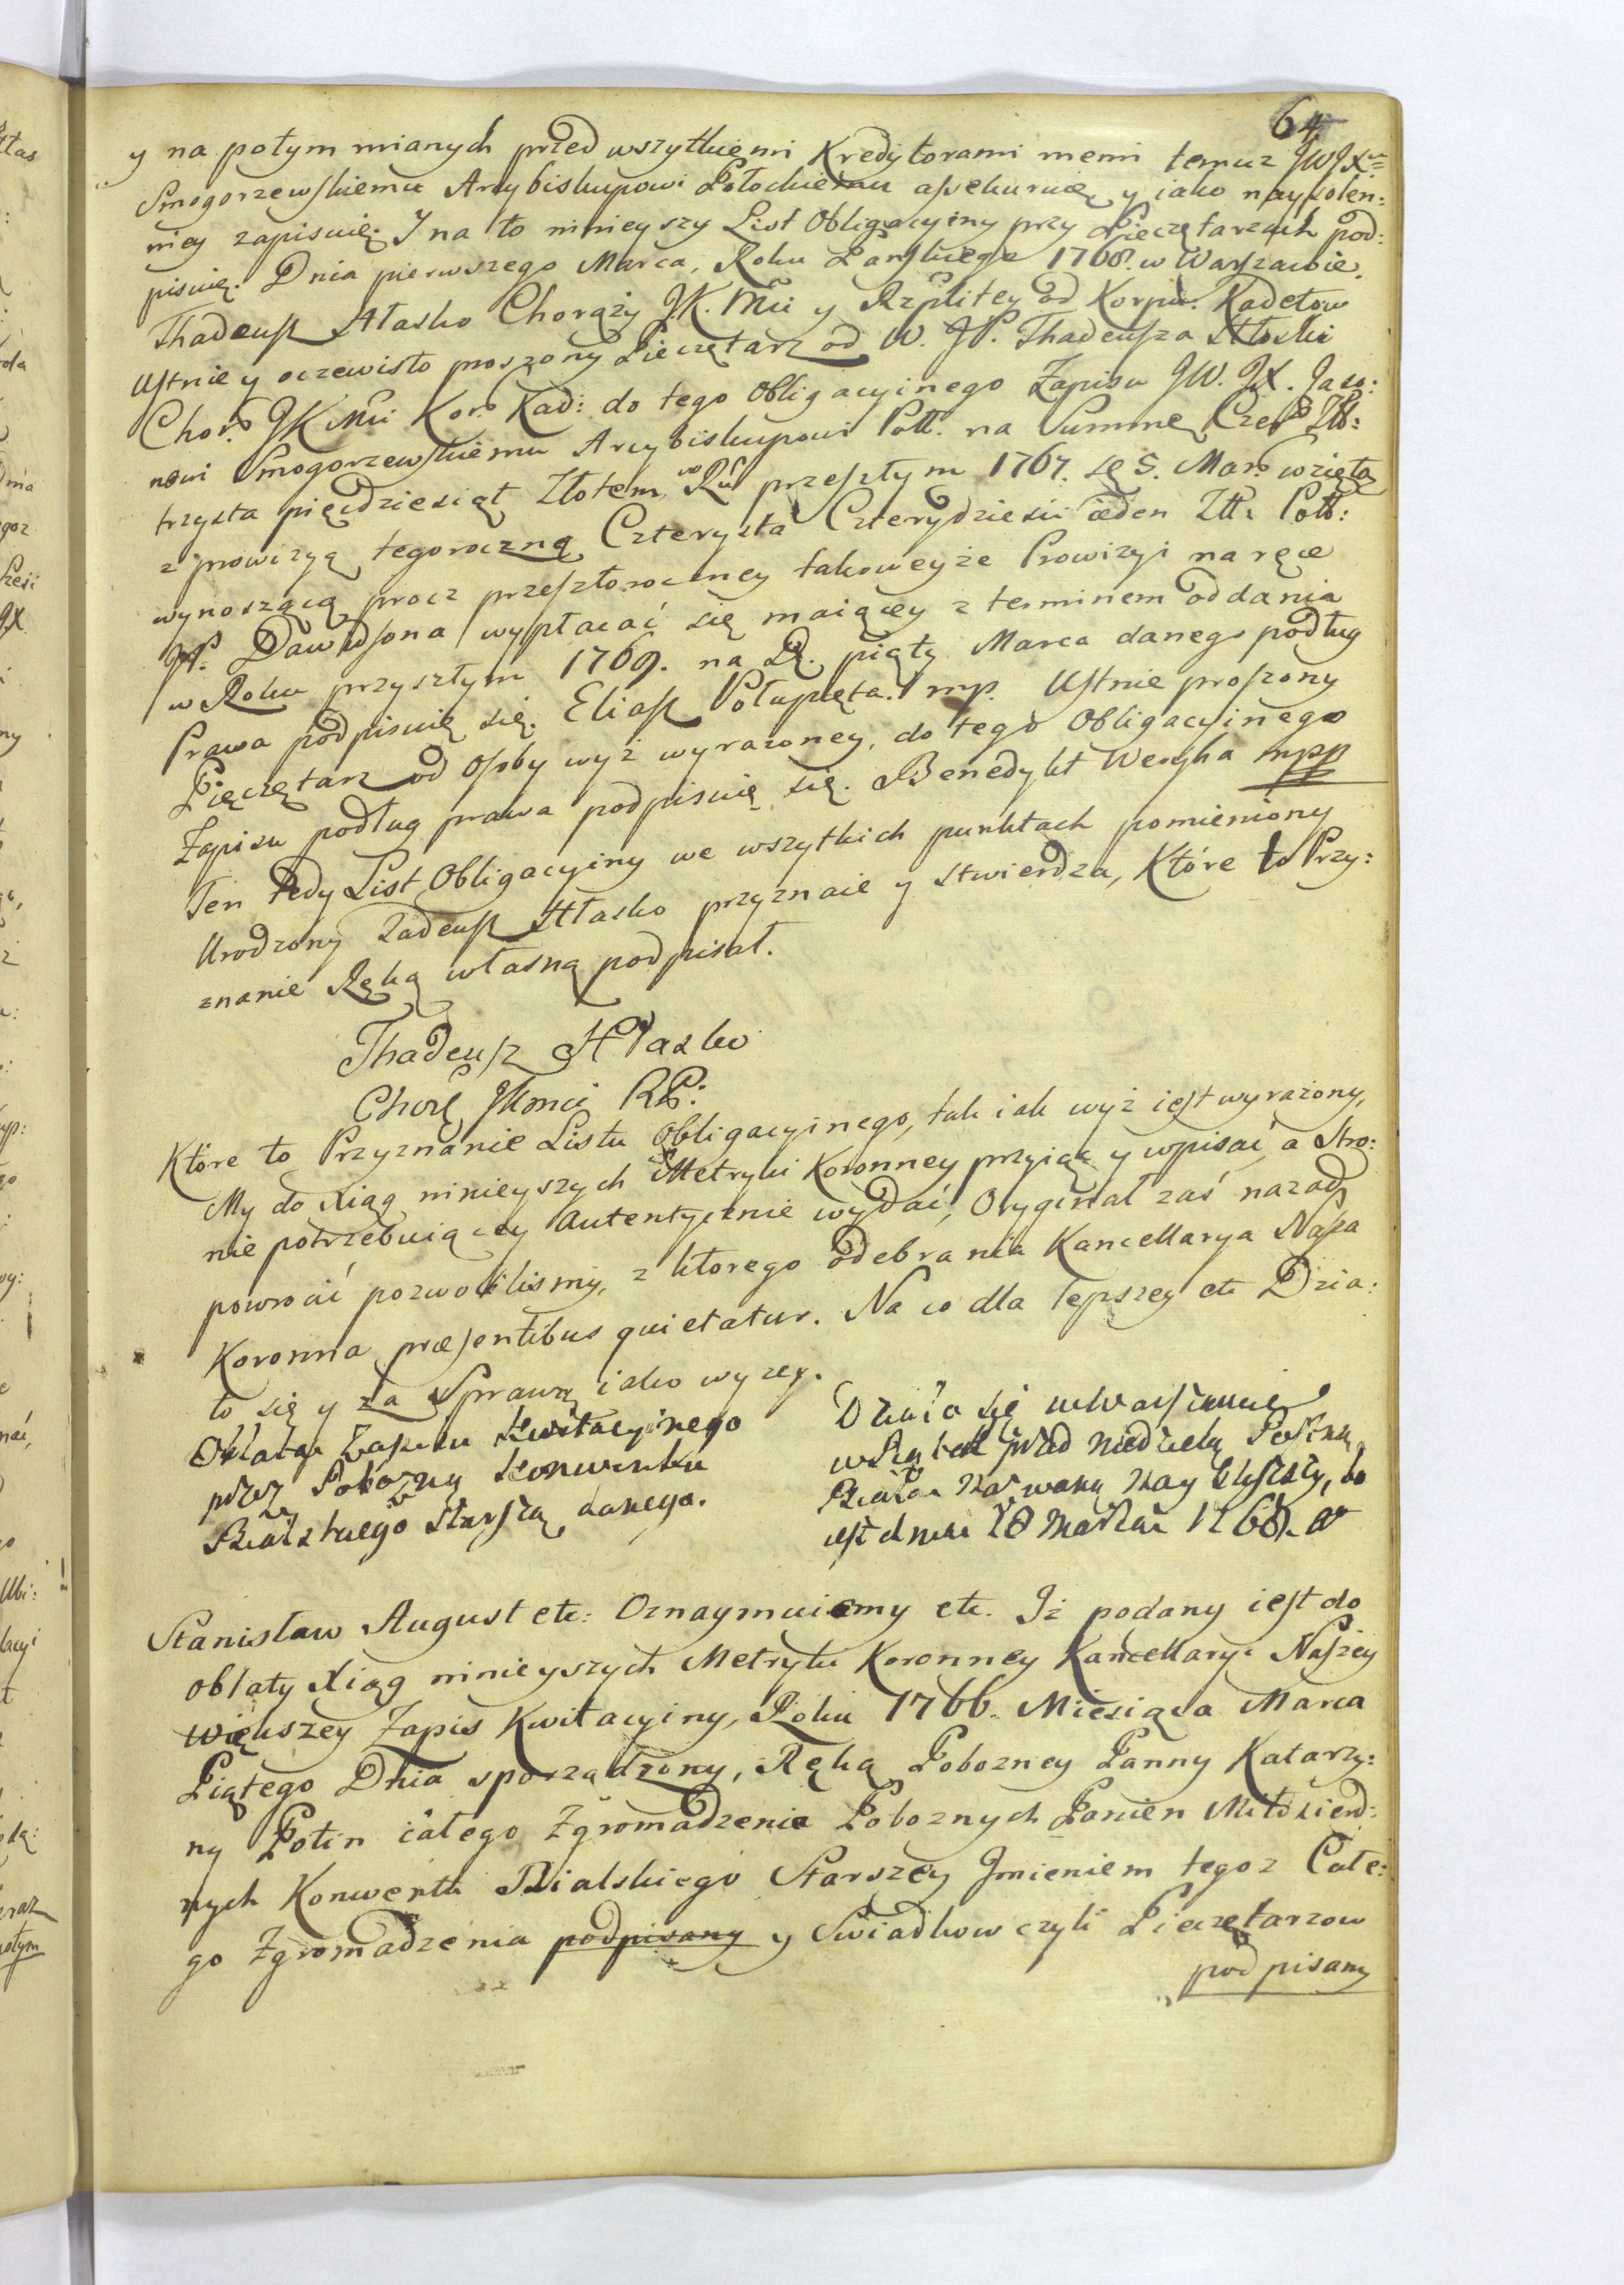 64
y na potym mianych przed wszytkiemi Kredytorami memi temuz JWJXu
Smogorzewskiemu Arcybiskupowi Połockiemu assekuruię y iako naysolen:
niey zapisuię. J na to ninieyszy List Obligacyiny przy Pieczętarzach pod:
pisuię. Dnia pierwszego Marca, Roku Pańskiego 1768. w Warszawie.
Thadeusz Hłasko Chorąży J.K. Mci y Rzplitey od Korpu. Kadetow
Ustnie y oczewisto proszony Pieczętarz od W. JP. Thadeusza Hłoski
Chor. JK Mci Kor. Kad: do tego Obligacyinego Zapisu JW. JX. Jaso:
nowi Smogorzewskiemu Arcybiskupowi Połł. na Summę Czer Zło:
trzysta pięcdziesiąt Złotem, w Ru przeszłym 1767. 5. Mar. wziętą
z prowizyą tegoroczną Czterysta Czterydziesci ieden Złł. Poll:
wynoszącą procz przeszłoroczney takoweyże Prowizyi na ręce
JP. Dawidsona wypłacać się maiącey z terminem oddania
w Roku przyszłym 1769. na D. piąty Marca danego podług
Prawa podpisuię się. Eliasz Połupięta. mp. Ustnie proszony
Pięczętarz od Osoby wyż wyrażoney, do tego Obligacyinego
Zapisu podług prawa podpisuię się. Benedykt Weryha mpp
Ten tedy List Obligacyiny we wszytkich punktach pomieniony
Urodzony Tadeusz Hłasko przyznaie y stwierdza, Które to Przy:
znanie Ręką własną podpisał.
Thadeusz Hłasko
Chorę JKmci RP:
Które to Przyznanie Listu Obligacyinego, tak iak wyż iest wyrażony,
My do Xiąg ninieyszych Metryki Koronney przyiąć y wpisać, a Stro:
nie potrzebuiącey Autentycznie wydać, Orygmał zaś nazad
powrocić pozwoliliśmy, z ktorego odebrania Kancellarya Nasza
Koronna præsentibus quietatur. Na co dla lepszey etc Dzia:
ło się y za Sprawą iako wyzey.
Oblata Zapisu kwitacyinego
przez Pobożną Konwentu
Bialskiego Starszą danego.
Działo się w Warszawie
w Piątek przed Niedzielą Postną
Białą nazwaną nay bliższy, to
iest dnia 18 Marca 1768. Ar
Stanisław August etc: Oznaymuiemy etc. Jż podany iest do
oblaty Xiąg ninieyszych Metryki Koronney Kancellaryi Naszey
większey Zapis Kwitacyiny, Roku 1766. Miesiąca Marca
Piątego Dnia sporządzony, Ręką Pobozney Panny Katarzy:
ny Potin całego Zgromadzenia Poboznych Panien Miłosierd:
nych Konwentu Bialskiego Starszey Jmieniem tegoz Całe:
go Zgromadzenia podpisany y Swiadkow czyli Pieczętarzow
podpisany